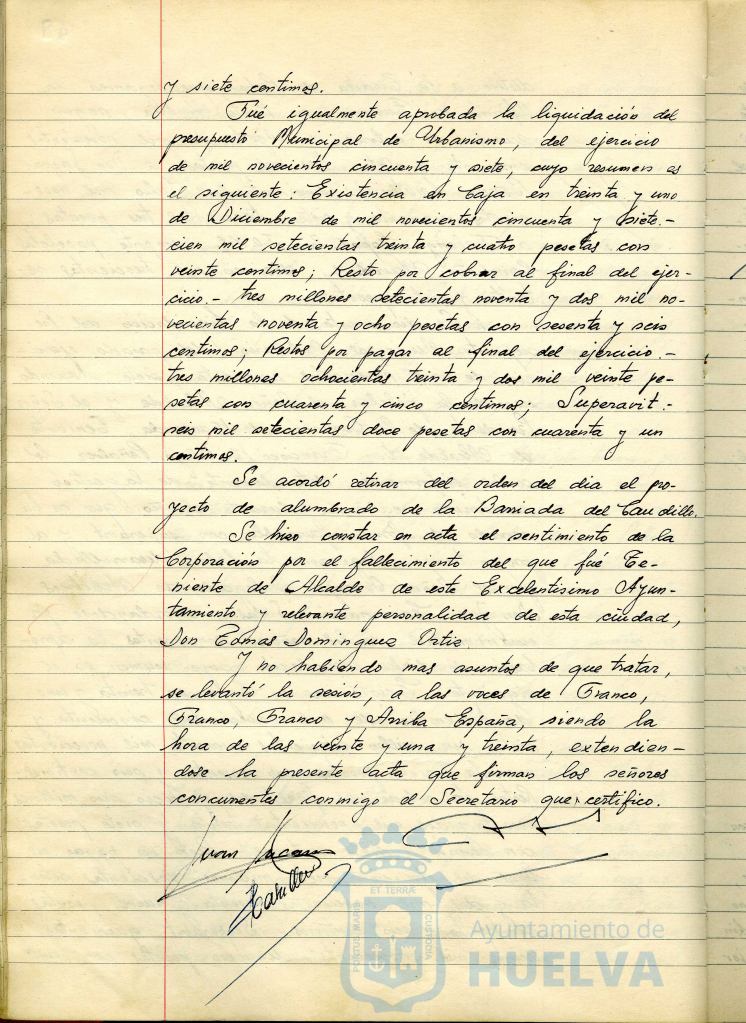 y siete centimos.
Fué igualmente aprobada la liquidación del
presupuesto Municipal de Urbanismo, del ejercicio
de mil novecientos cincuenta y siete, cuyo resumen es
el siguiente: Existencia en Caja en treinta y uno
de Diciembre de mil novecientos cincuenta y siete.-
cien mil setecientas treinta y cuatro pesetas con
veinte centimos; Resto por cobrar al final del ejer-
cicio.- tres millones setecientas noventa y dos mil no-
vecientas noventa y ocho pesetas con sesenta y seis
centimos; Restos por pagar al final del ejercicio.-
tres millones ochocientas treinta y dos mil veinte pe-
setas con cuarenta y cinco centimos; Superavit.-
seis mil setecientas doce pesetas con cuarenta y un
centimos.
Se acordó retirar del orden del dia el pro-
yecto de alumbrado de la Barriada del Caudillo.
Se hizo constar en acta el sentimiento de la
Corporación por el fallecimiento del que fué Te-
niente de Alcalde de este Excelentisimo Ayun-
tamiento y relevante personalidad de esta ciudad,
Don Tomás Dominguez Ortiz.
Y no habiendo mas asuntos de que tratar,
se levantó la sesión, a las voces de Franco,
Franco, Franco y Arriba España, siendo la
hora de las veinte y una y treinta, extendien-
dose la presente acta que firman los señores
concurrentes conmigo el Secretario que certifico.
Juan
ET TERRÆ
PORTUS MARIS
CUSTODIA
Ayuntamiento de
HUELVA